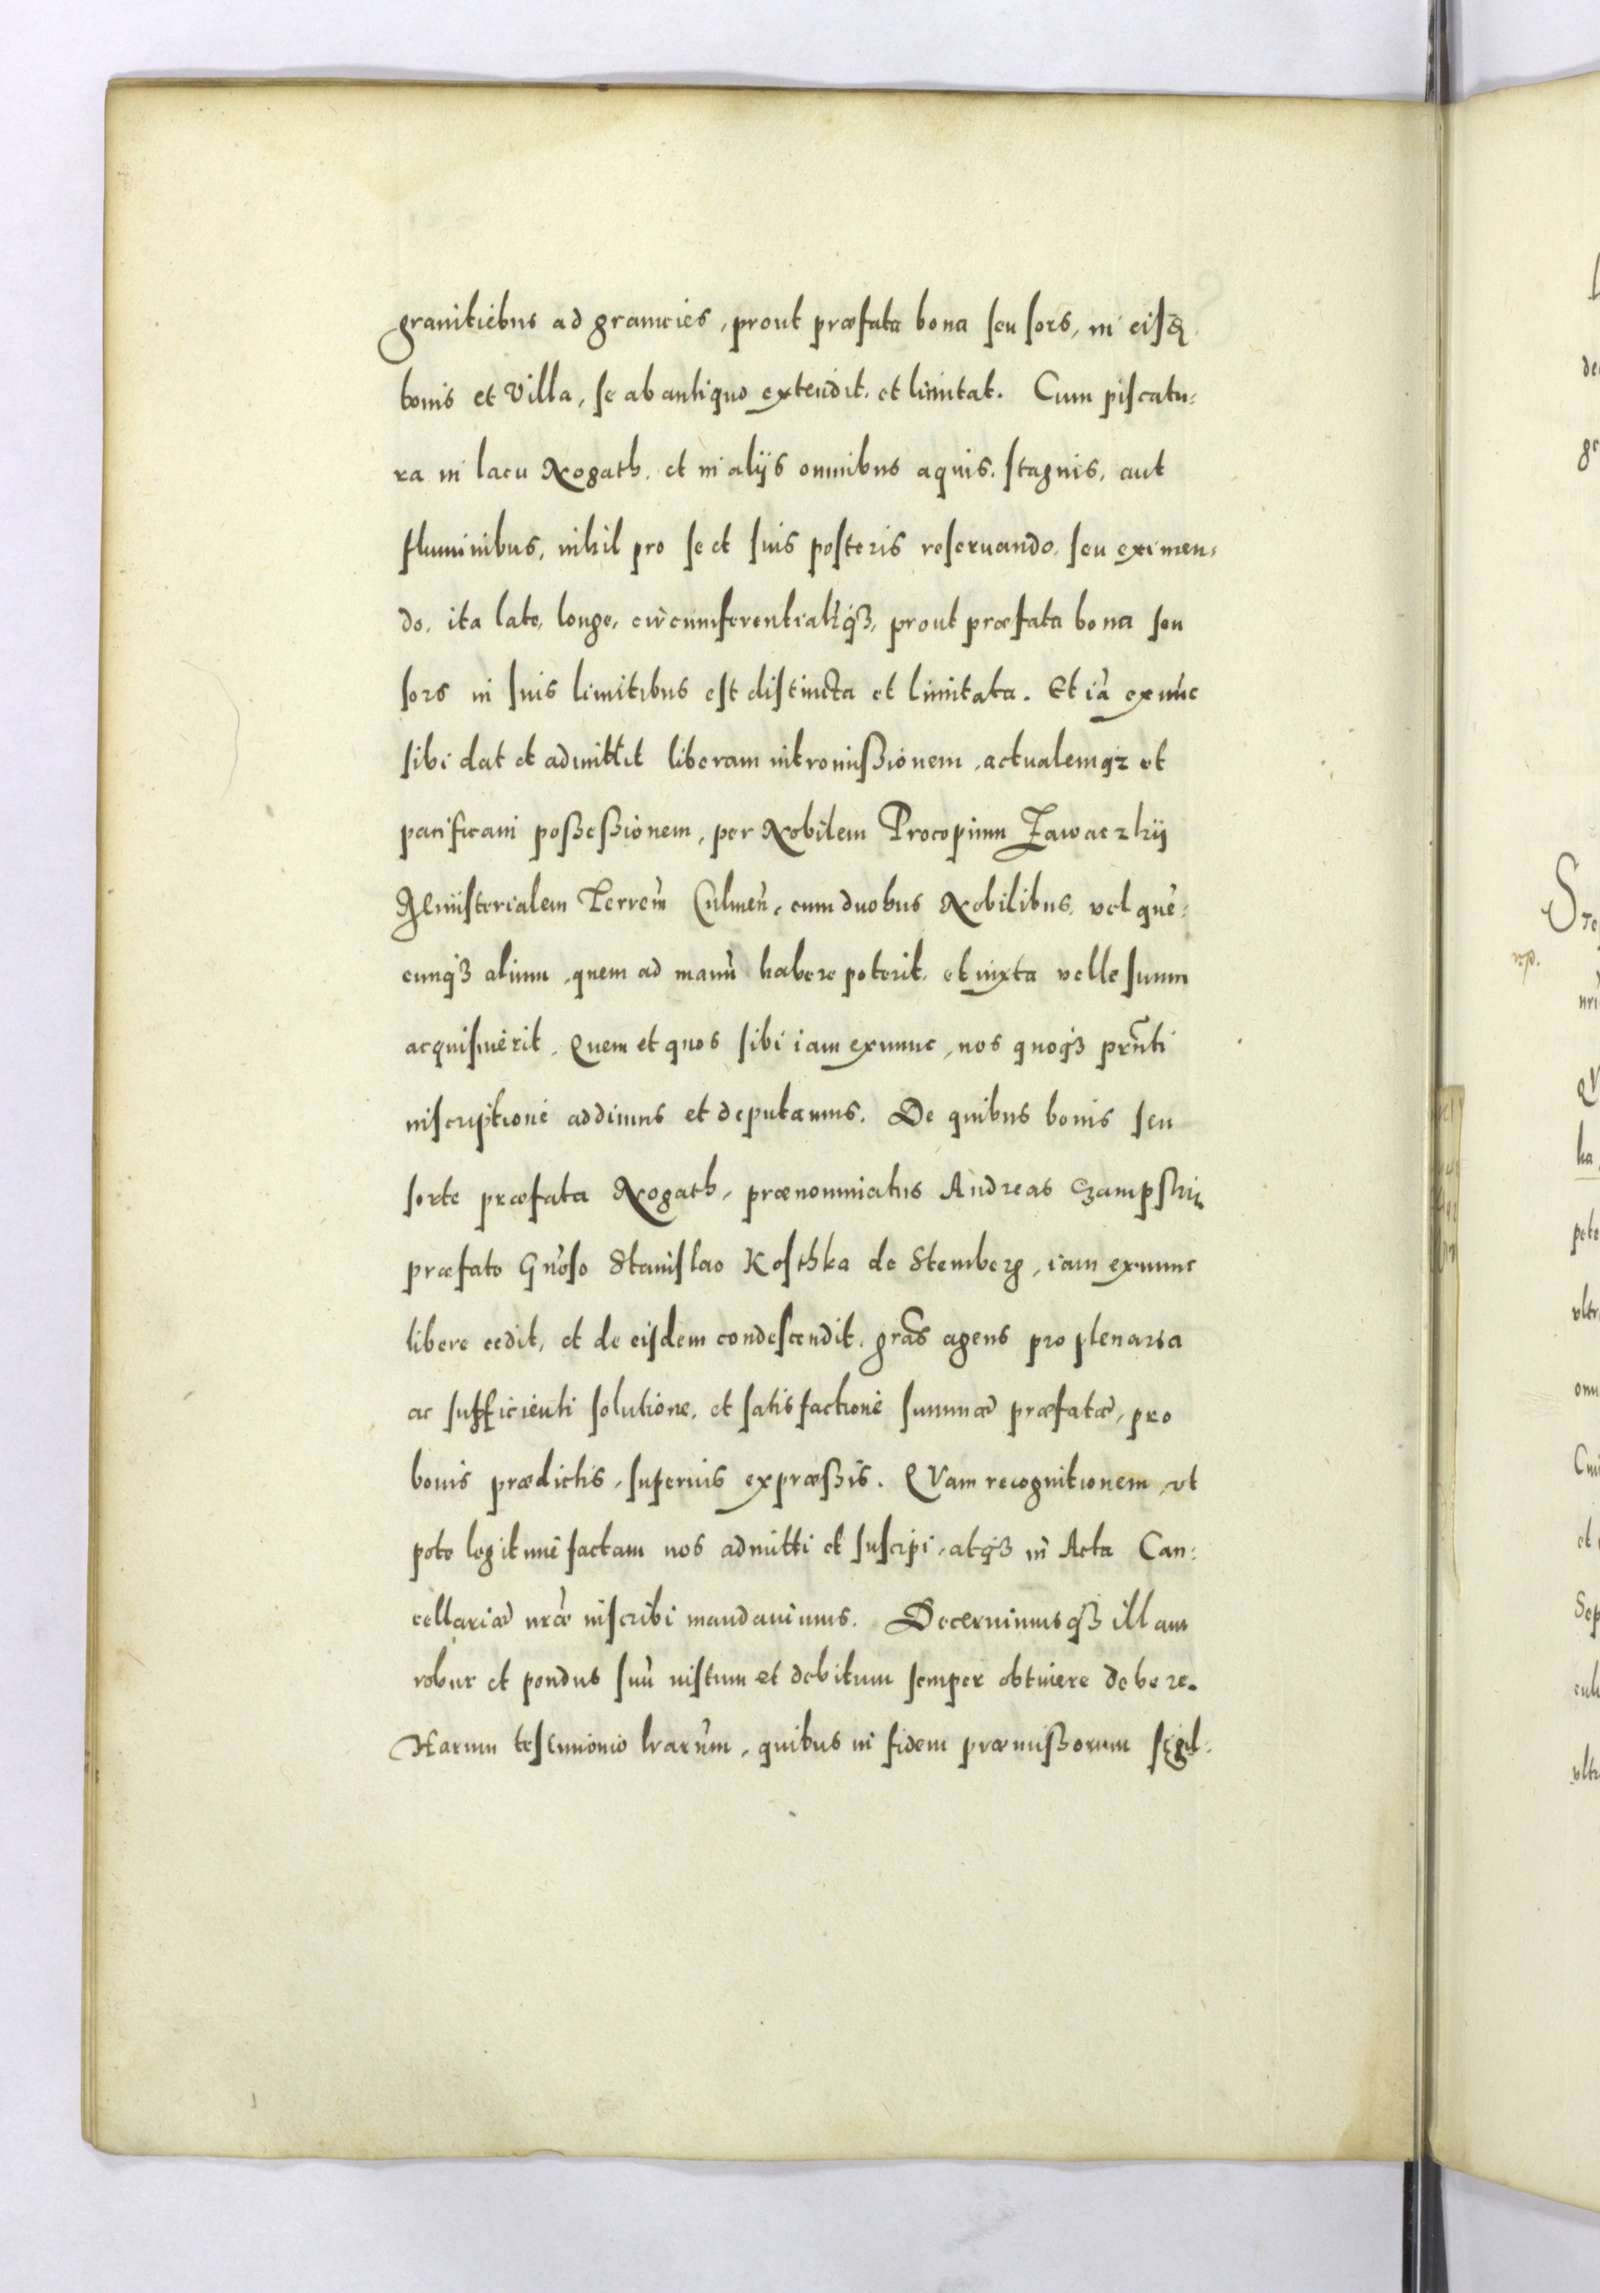 granitiebus ad granicies, prout præfata bona seu sors, in eisdẽ
bonis et villa, se ab antiquo extendit, et limitat. Cum piscatu=
ra in lacu Nogath, et in alijs omnibus aquis, stagnis, aut
fluminibus, nihil pro se et suis posteris reseruando, seu eximen=
do, ita late, longe, circumferentialitʼqꝫ, prout præfata bona seu
sors in suis limitibus est distincta et limitata. Et iã exnũc
sibi dat et admittit liberam intromißionem, actualemqꝫ et
pacificam poßeßionem, per Nobilem Procopium Zawaczkij
Ministerialem Terreñ Culmeñ, cum duobus Nobilibus, vel quẽ=
cunqꝫ alium, quem ad manũ habere poterit, et iuxta velle suum
acquisiuerit, Quem et quos sibi iam exnunc, nos quoqꝫ prñti
inscriptione addimus et deputamus. De quibus bonis seu
sorte præfata Nogath, prænominatus Andreas Czampski,
præfato Gñoso Stanislao Kosthka de Stemberg, iam exnunc
libere cedit, et de eisdem condescendit, grãs agens pro plenaria
ac sufficienti solutione, et satisfactione summæ præfatæ, pro
bonis prædictis, superius expræßis. QVam recognitionem, vt
pote legitime factam nos admitti et suscipi, atqꝫ in Acta Can=
cellariæ nræ̃ inscribi mandauimus. Decernimusqꝫ illam
robur et pondus suũ iustum et debitum semper obtinere debere.
Harum testimonio lrarũm, quibus in fidem præmißorum sigil=